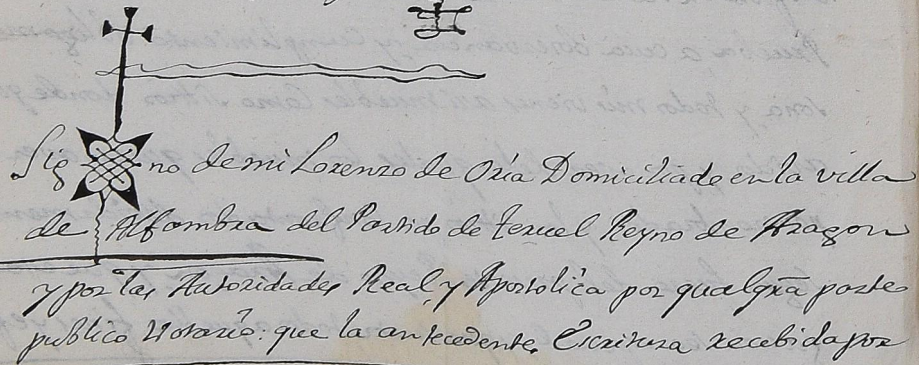 Sig no de mi Lorenzo de Oria Domiciliado en la villa
de Alfambra del Partido de teruel Reyno de Aragon
y por las Autoridades Real y Apostolica por qualqra parte
publico Notario: que la antecedente Escritura recebida por